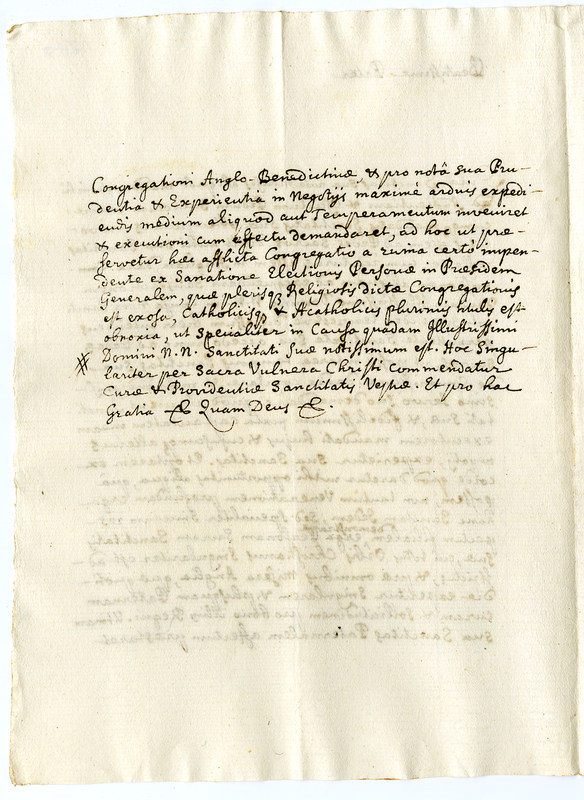 Congregationi Anglo-Benedictinæ, & pro notâ sua Pru-
dentia & Experientia in Negotijs maximè arduis expedi-
endis medium aliquod aut Temperamentum inveniret
& executioni cum effectu demandaret, ad hoc ut præ-
servetur hæc afflicta Congregatio a ruina certò impen-
dente ex Sanatione Electionis Personæ in Præsidem
Generalem, quæ plerisq, Religiosis dictæ Congregationis
est exosa, Catholicisq, & Acatholicis plurimis
obnoxia, ut Specialiter in Causa quadam Illustrissimi
# Domini N.N. Sanctitati Suæ notissimum est. Hoc Singu-
lariter per Sacra Vulnera Christi Commendatur
Curæ & Providentiæ Sanctitatis Vestræ. Et pro hac
Gratia &c Quam Deus &c.